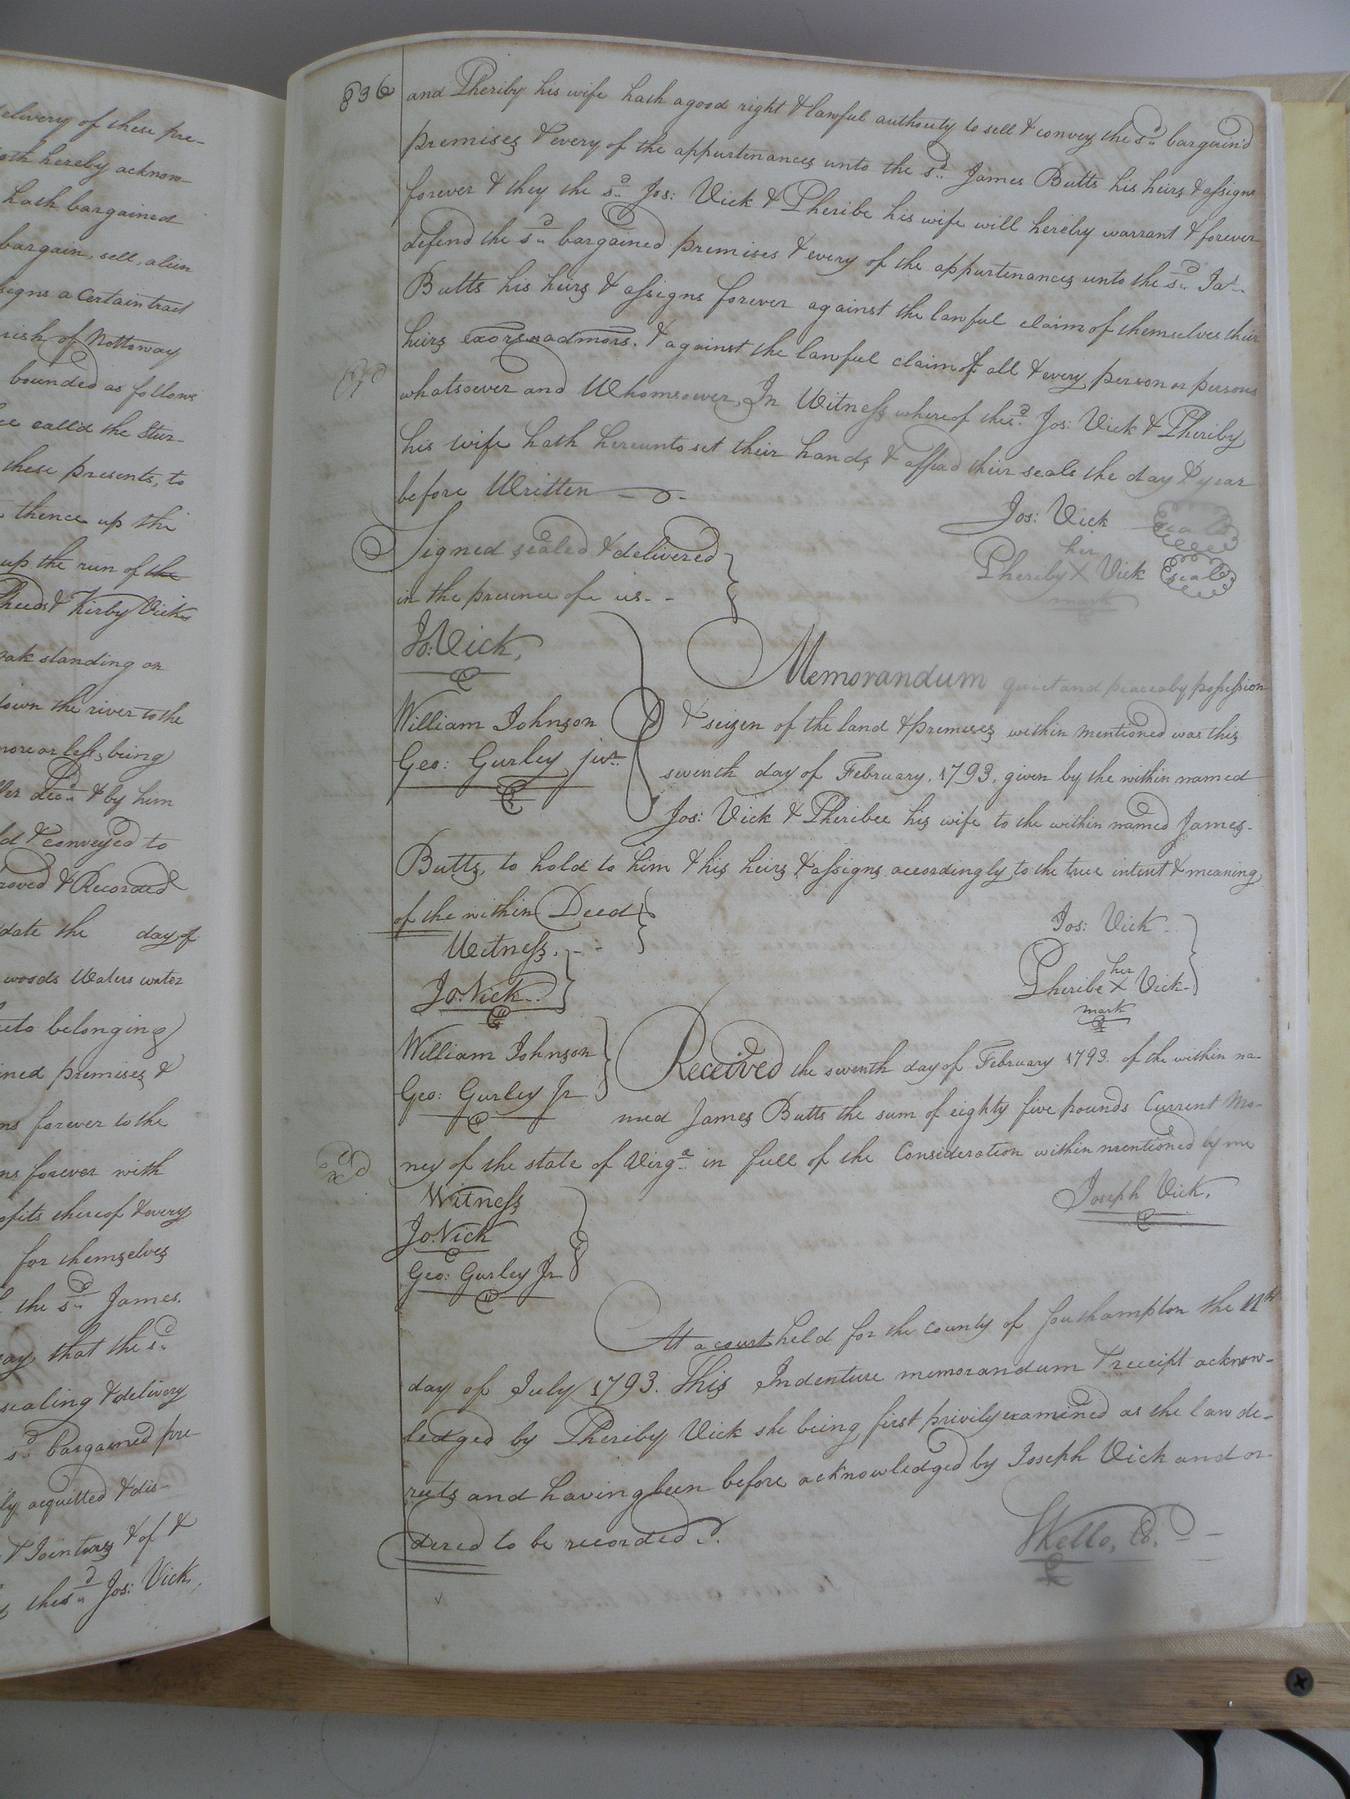 elivery of these pre-
oth hereby acknow-
hath bargained
bargain, sell, alien
signs a Certain tract
rish of Nottoway
bounded as follows
ce call'd the Stur-
these presents, to
thence up the
up the run of the
Kirby Vicks
oak standing on
down the river to the
more or less, being
decd & by him
d & conveyed to
roved & Recorded
date the day of
woods Waters water
eto belonging
ined premises &
ns forever to the
ns forever with
ofits thereof & every
for themselves
the sd James
ay, that the sd
sealing & delivery
sd bargained pre-
ly acquitted & dis-
& Jointurs & of &
the sd Jos: Vick,
836
and Pheriby his wife hath a good right & lawful authority to sell & convey the sd bargain'd
premises & every of the appurtenances unto the sd James Butts his heirs & assigns
forever & they the sd Jos: Vick & Pheribe his wife will hereby warrant & forever
defend the sd bargained premises & every of the appurtenances unto the sd Ja's
Butts his heirs & assigns forever against the lawful claim of themselves their
heirs exors admors. & against the lawful claim of all & every person or persons
whatsoever and Whomsoever, In Witness whereof the sd Jos: Vick & Pheriby
his wife hath hereunto set their hands & affixd their seals the day & year
before Written
Jos: Vick seal
Signed sealed & delivered
her
Pheriby X Vick seal
mark
in the presence of us - -
Jo: Vick,
Memorandum quiet and peaceaby possession
William Johnson
& seizen of the land & premises within mentioned was this
Geo: Gurley junr
seventh day of February, 1793, given by the within named
Jos: Vick & Pheribee his wife to the within named James
Butts, to hold to him & his heirs & assigns accordingly to the true intent & meaning
of the within Deed
Jos: Vick
Witness. - -
her
Pheribe X Vick
mark
Jo: Vick
William Johnson
Received the seventh day of February 1793. of the within na-
Geo: Gurley Jr
med James Butts the sum of eighty five pounds Current Mo-
ney of the state of Virga in full of the Consideration within mentioned by me
Witness
Joseph Vick.
Jo: Vick
Geo: Gurley Jr
At a court held for the county of Southampton the 11th
day of July 1793. This Indenture memorandum & receipt acknow-
ledged by Pheriby Vick she being first privily examined as the law de-
rects and having been before acknowledged by Joseph Vick and or-
dered to be recorded.
SKello, Cl.